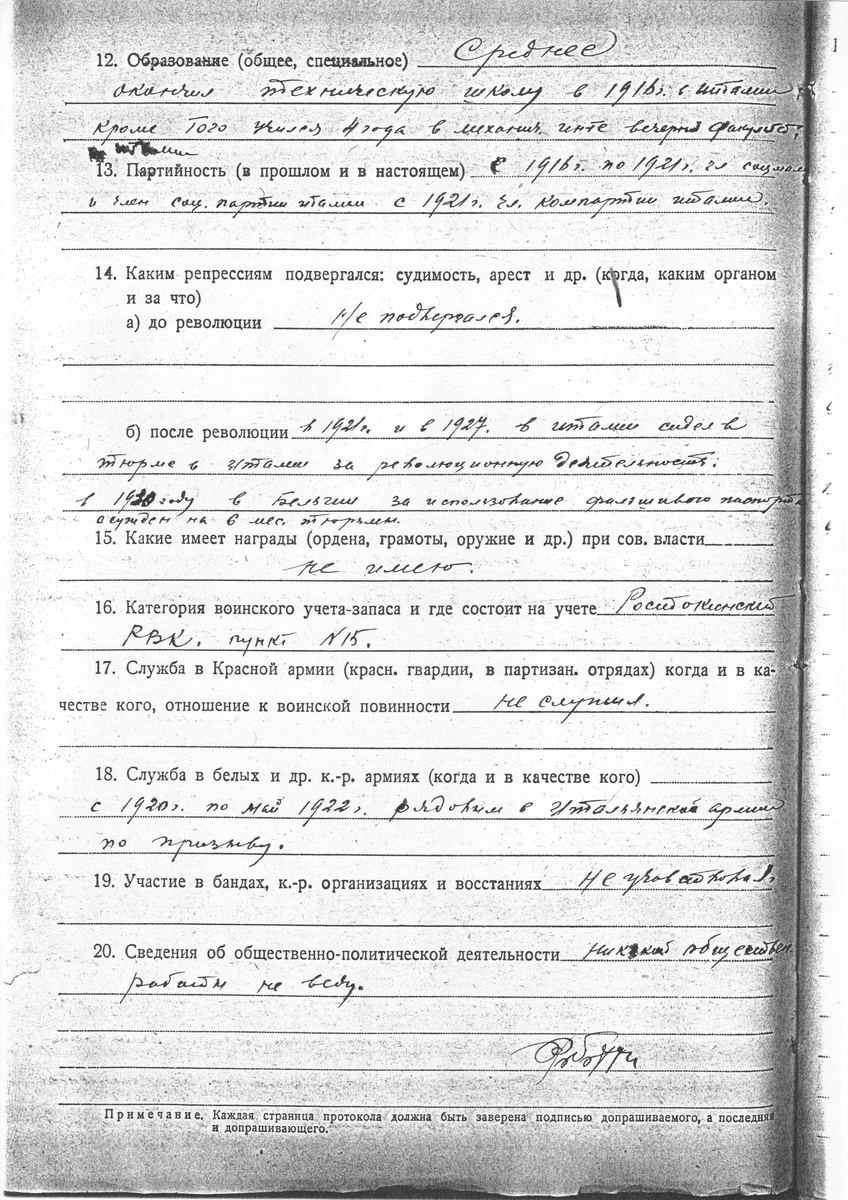 12. Образование (общее, специальное) Среднее
окончил техническую школу в 1916г. в италии
кроме того учился 4 года в механич. инте вечерн факультет.
в италии
13. Партийность (в прошлом и в настоящем) с 1916г. по 1921г. чл соцмол
и член соц. партии италии с 1921г. чл. компартии италии.
14. Каким репрессиям подвергался: судимость, арест и др. (когда, каким органом
и за что)
а) до революции Не подвергался.
б) после революции в 1921г. и в 1927. в италии сидел в
тюрме в Италии за революционную деятельность.
в 1930 году в Бельгии за использование фальшивого паспорта
осужден на 6 мес. тюрьмы.
15. Какие имеет награды (ордена, грамоты, оружие и др.) при сов. власти
не имею.
16. Категория воинского учета-запаса и где состоит на учете Ростокинский
РВК. пункт N15.
17. Служба в Красной армии (красн. гвардии, в партизан. отрядах) когда и в ка-
честве кого, отношение к воинской повинности не служил.
18. Служба в белых и др. к.-р. армиях (когда и в качестве кого)
с 1920г. по май 1922г. рядовым в Итальянской армии
по призыву.
19. Участие в бандах, к.-р. организациях и восстаниях Не участвовал
20. Сведения об общественно-политической деятельности никакой обществен.
работы не веду.
Примечание. Каждая страница протокола должна быть заверена подписью допрашиваемого, а последняя
и допрашивающего.